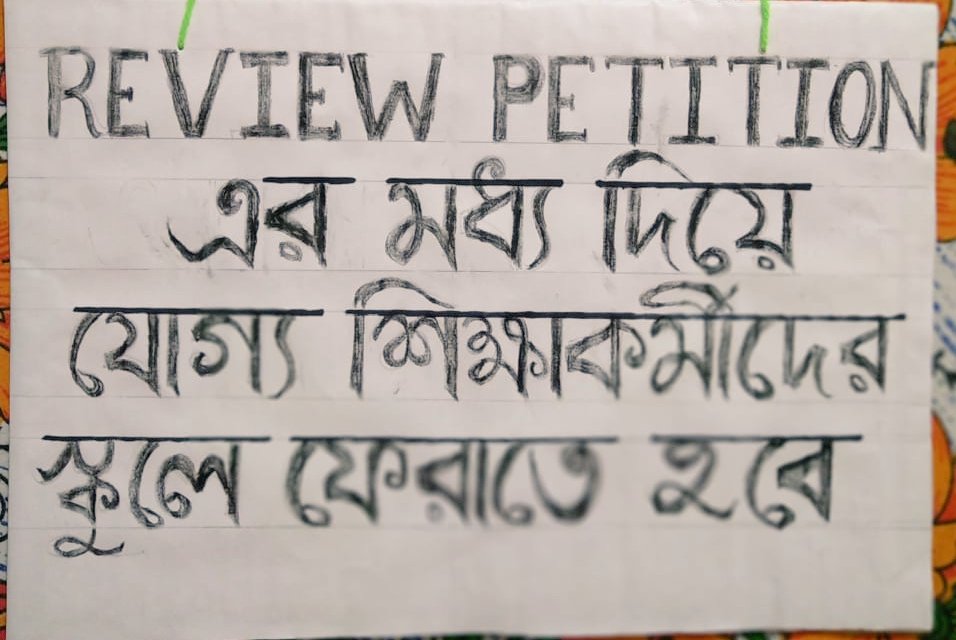 REVIEW PETITION
এর মধ্য দিয়ে
যোগ্য শিক্ষাকর্মীদের
স্কুলে ফেরাতে হবে